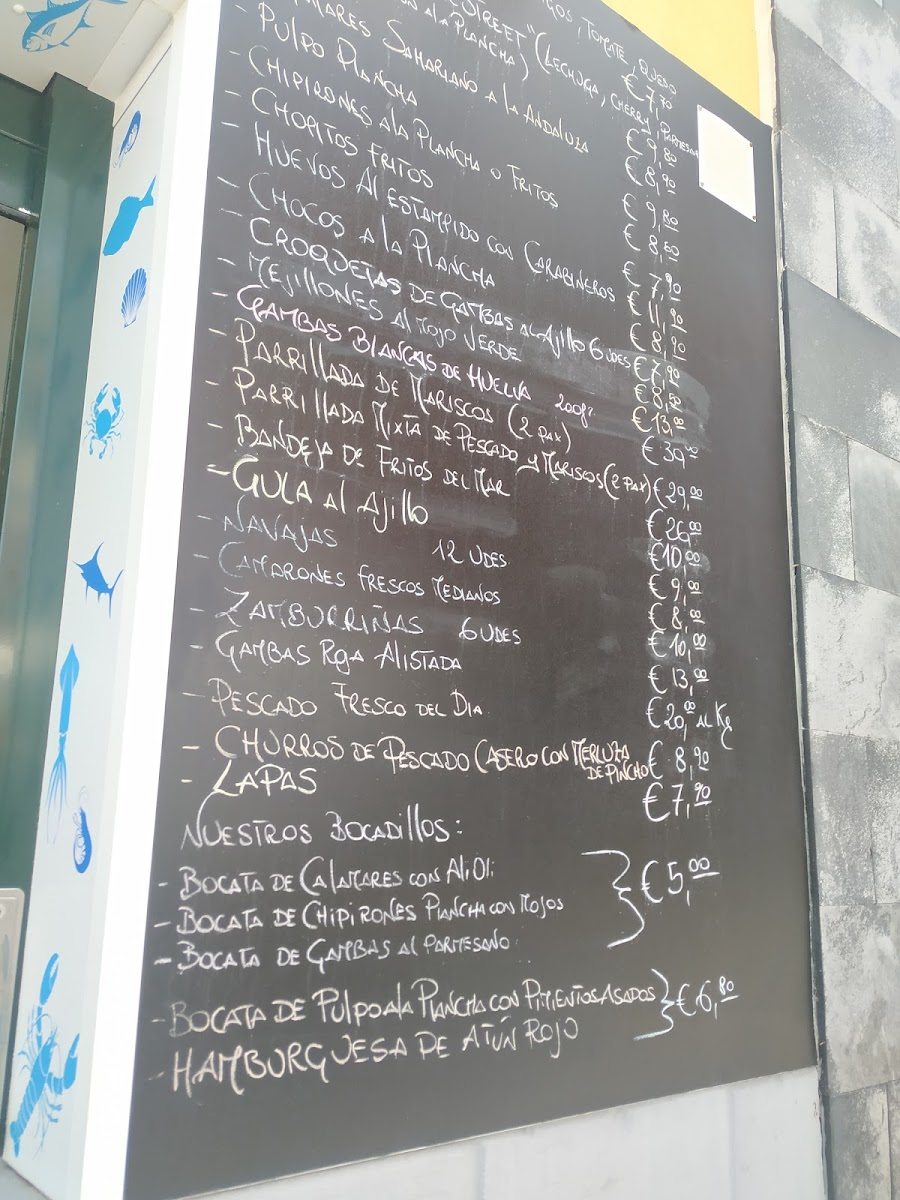 TOMATE, QUESO €7,70
STREET" (LECHUGA, CHERRY, PARMESANO
A LA PLANCHA) €9,80
SAHARIANO A LA ANDALUZA €8,90
- PULPO PLANCHA €9,80
- CHIPIRONES A LA PLANCHA O FRITOS €8,50
- CHOPITOS FRITOS €7,90
- HUEVOS AL ESTAMPIDO CON CARABINEROS €11,90
- CHOCOS A LA PLANCHA €8,90
- CROQUETAS DE GAMBAS AL AJILLO 6 UDES €7,90
- MEJILLONES AL MOJO VERDE €8,50
- GAMBAS BLANCAS DE HUELVA 200gr €13,00
- PARRILLADA DE MARISCOS (2 PAX) €39,00
- PARRILLADA MIXTA DE PESCADO y MARISCOS (2 PAX) €29,00
- BANDEJA DE FRITOS DEL MAR €26,00
- GULA AL AJILLO €10,00
- NAVAJAS 12 UDES €9,00
- CAMARONES FRESCOS MEDIANOS €8,00
- ZAMBURRIÑAS 6 UDES €10,00
- GAMBAS ROJA ALISTADA €13,00
- PESCADO FRESCO DEL DIA €20,00 AL Kg
- CHURROS DE PESCADO CASERO CON MERLUZA DE PINCHO €8,90
- LAPAS €7,90
NUESTROS BOCADILLOS:
- BOCATA DE CALAMARES CON ALIOLI
- BOCATA DE CHIPIRONES PLANCHA CON MOJOS €5,00
- BOCATA DE GAMBAS AL PARMESANO
- BOCATA DE PULPO A LA PLANCHA CON PIMIENTOS ASADOS €6,80
- HAMBURGUESA DE ATÚN ROJO